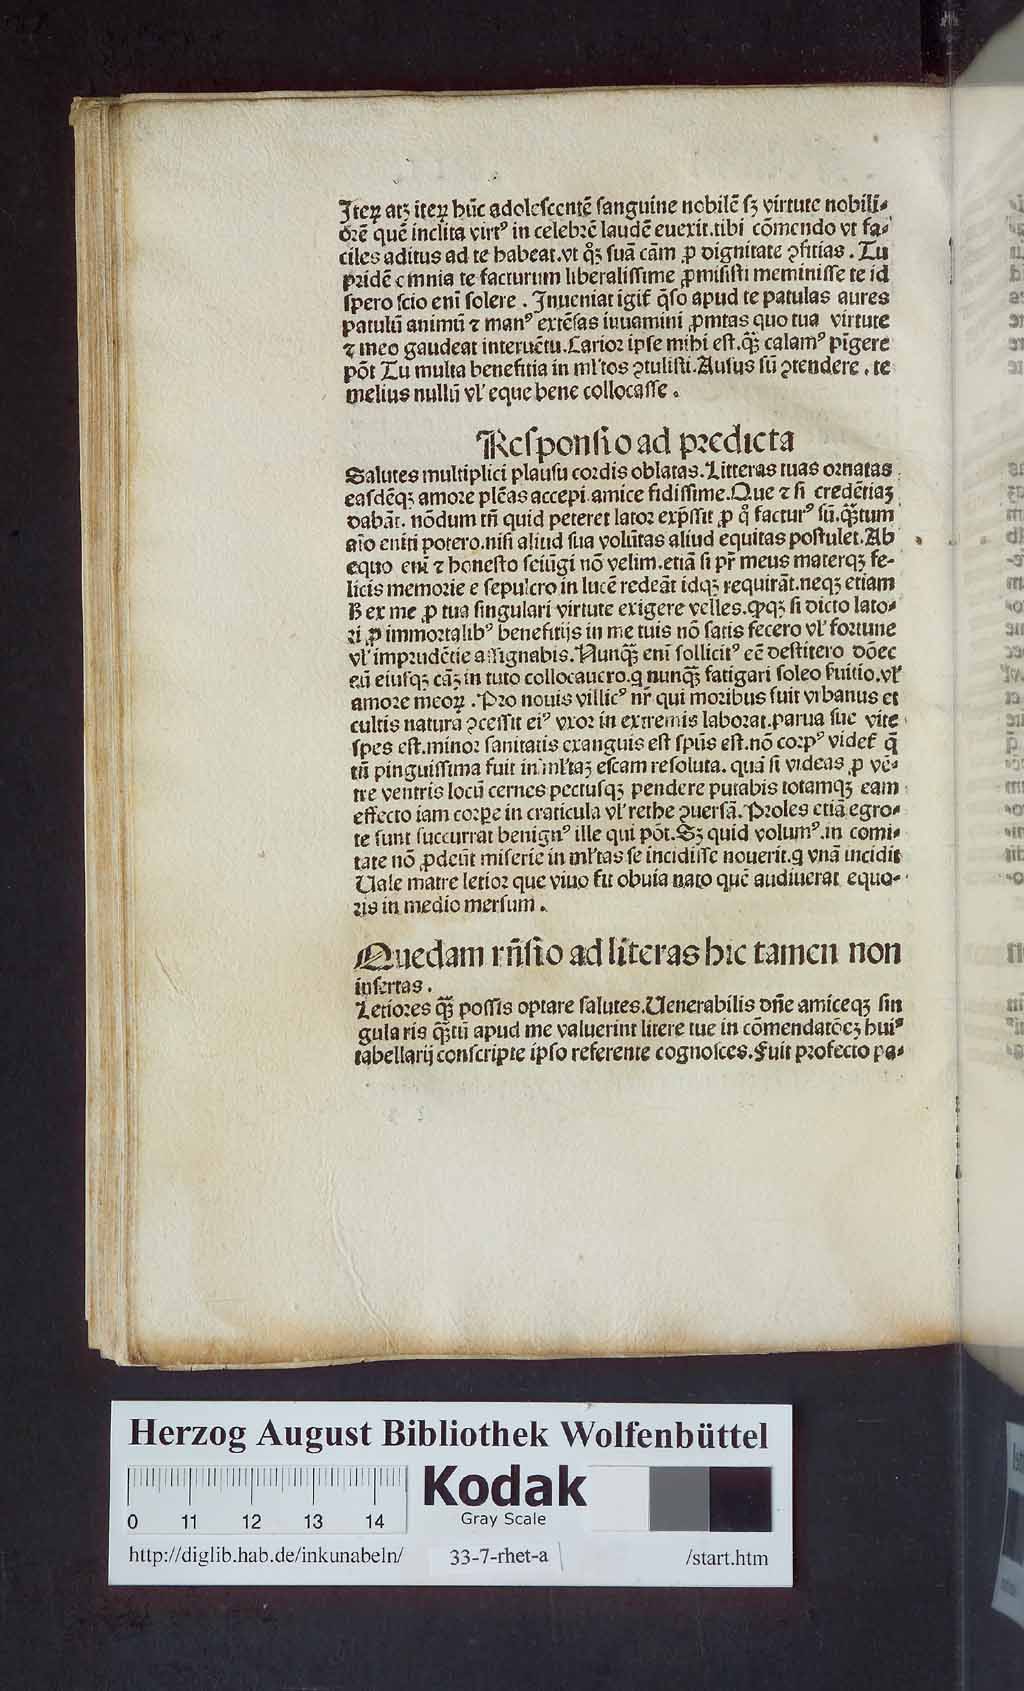 Iteꝝ atqꝫ iteꝝ hūc adolescentē sanguine nobilē sꝫ virtute nobili⸗
orē quē inclita virtꝰ in celebrē laudē euexit.tibi cōmendo vt fa⸗
ciles aditus ad te habeat.vt qꝫ suā cām ꝓ dignitate ꝯficias . Tu
pridē omnia te facturum liberalissime ꝓmisisti meminisse te id
spero scio enī solere . Inueniat igit̄ q̄so apud te patulas aures
patulū animū ⁊ manꝰ extēsas iuuamini ꝓmtas quo tua virtute
⁊ meo gaudeat interuētu.Carior ipse mihi est.qꝫ̄ calamꝰ pīgere
pōt Tu multa benefitia in ml'tos ꝯtulisti.Ausus sū ꝯtendere . te
melius nullū vl' eque bene collocasse .
Responsio ad predicta
Salutes multiplici plausu cordis oblatas.Litteras tuas ornatas
easdēqꝫ amore plēas accepi amice fidissime.Que ⁊ si credētiaꝫ
dabāt. nōdum tn̄ quid peteret lator exp̄ssit ꝓ q̊ facturꝰ sū.qꝫ̄tum
aīo eniti potero.nisi aliud sua volūtas aliud equitas postulet.Ab
equo enī ⁊ honesto seiūgi nō velim.etiā si pr̄ meus materqꝫ fe⸗
licis memorie e sepulcro in lucē redeāt idqꝫ requirāt.neqꝫ etiam
h ex me ꝓ tua singulari virtute exigere velles.qꝫ si dicto lato⸗
ri ꝓ immortalibꝰ benefitijs in me tuis nō satis fecero vl' fortune
vl' imprudētie assignabis.Nunqꝫ̄ enī sollicitꝰ eē destitero dōec
eū eiusqꝫ cāꝫ in tuto collocauero.q nunqꝫ̄ fatigari soleo fuitio.vl'
amore meoꝝ . Pro nouis villicꝰ nr̄ qui moribus fuit vrbanus et
cultis natura ꝯcessit eiꝰ vxor in extremis laborat.parua sue vite
spes est.minor sanitatis exanguis est spūs est.nō corpꝰ videt̄ q̄
tū pinguissima fuit in ml'taꝫ escam resoluta. quā si videas ꝓ vē⸗
tre ventris locū cernes pectusqꝫ pendere putabis totamqꝫ eam
effecto iam corpe in craticula vl' rethe ꝯuersā.Proles etiā egro⸗
te sunt succurrat benignꝰ ille qui pōt.Sꝫ quid volumꝰ.in comi⸗
tate nō ꝓdeūt miserie in ml'tas se incidisse nouerit.q vnā incidit
Uale matre letior que viuo fit obuia nato quē audiuerat equo⸗
ris in medio mersum .
Quedam rn̄sio ad literas hic tamen non
insertas .
Letiores qꝫ̄ possis optare salutes.Uenerabilis dn̄e amiceqꝫ sin
gularis qꝫ̄tū apud me valuerint litere tue in cōmendatōeꝫ huiꝰ
tabellarij conscripte ipso referente cognosces.Fuit profecto pa⸗
Herzog August Bibliothek Wolfenbüttel
Kodak
Gray Scale
0 11 12 13 14
http://diglib.hab.de/inkunabeln/ 33-7-rhet-a /start.htm